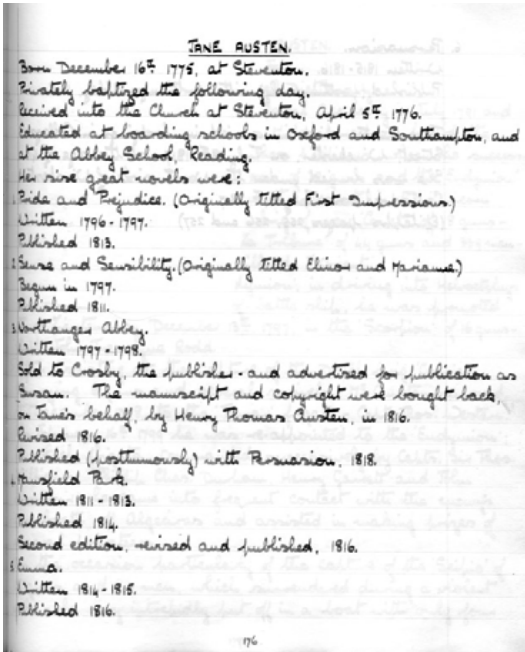 JANE AUSTEN.
Born December 16th 1775, at Steventon.
Privately baptized the following day.
Received into the Church at Steventon, April 5th 1776.
Educated at boarding schools in Oxford and Southampton, and
at the Abbey School, Reading.
Her six great novels were:
1. Pride and Prejudice. (Originally titled First Impressions.)
Written 1796-1797.
Published 1813.
2. Sense and Sensibility. (Originally titled Elinor and Marianne.)
Begun in 1797.
Published 1811.
3. Northanger Abbey.
Written 1797-1798.
Sold to Crosby, the publisher - and advertised for publication as
Susan. The manuscript and copyright were bought back,
on Jane's behalf, by Henry Thomas Austen, in 1816.
Revised 1816.
Published (posthumously) with Persuasion, 1818.
4. Mansfield Park.
Written 1811-1813.
Published 1814.
Second edition, revised and published, 1816.
5. Emma.
Written 1814-1815.
Published 1816.
176